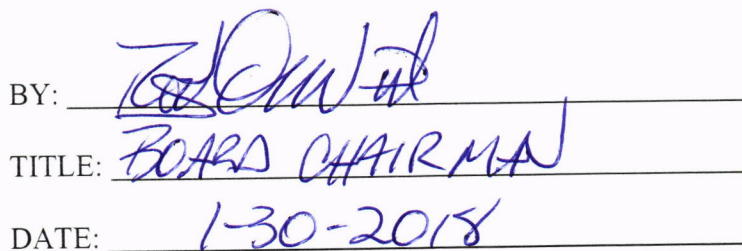 BY:
TITLE: BOARD CHAIRMAN
DATE: 1-30-2018